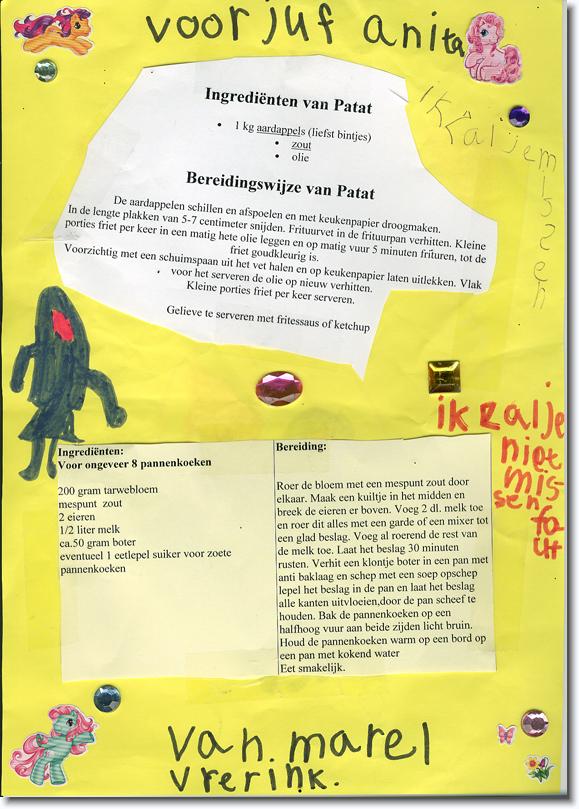 voor juf anita
ik zal je m
issen
Ingrediënten van Patat
• 1 kg aardappels (liefst bintjes)
• zout
• olie
Bereidingswijze van Patat
De aardappelen schillen en afspoelen en met keukenpapier droogmaken.
In de lengte plakken van 5-7 centimeter snijden. Frituurvet in de frituurpan verhitten. Kleine
porties friet per keer in een matig hete olie leggen en op matig vuur 5 minuten frituren, tot de
friet goudkleurig is.
Voorzichtig met een schuimspaan uit het vet halen en op keukenpapier laten uitlekken. Vlak
voor het serveren de olie op nieuw verhitten.
Kleine porties friet per keer serveren.
Gelieve te serveren met fritessaus of ketchup
ik zal je
niet
mis
sen
fo
ut
Ingrediënten:
Voor ongeveer 8 pannenkoeken
200 gram tarwebloem
mespunt zout
2 eieren
1/2 liter melk
ca.50 gram boter
eventueel 1 eetlepel suiker voor zoete
pannenkoeken
Bereiding:
Roer de bloem met een mespunt zout door
elkaar. Maak een kuiltje in het midden en
breek de eieren er boven. Voeg 2 dl. melk toe
en roer dit alles met een garde of een mixer tot
een glad beslag. Voeg al roerend de rest van
de melk toe. Laat het beslag 30 minuten
rusten. Verhit een klontje boter in een pan met
anti baklaag en schep met een soep opschep
lepel het beslag in de pan en laat het beslag
alle kanten uitvloeien,door de pan scheef te
houden. Bak de pannenkoeken op een
halfhoog vuur aan beide zijden licht bruin.
Houd de pannenkoeken warm op een bord op
een pan met kokend water
Eet smakelijk.
van. marel
vrerink.